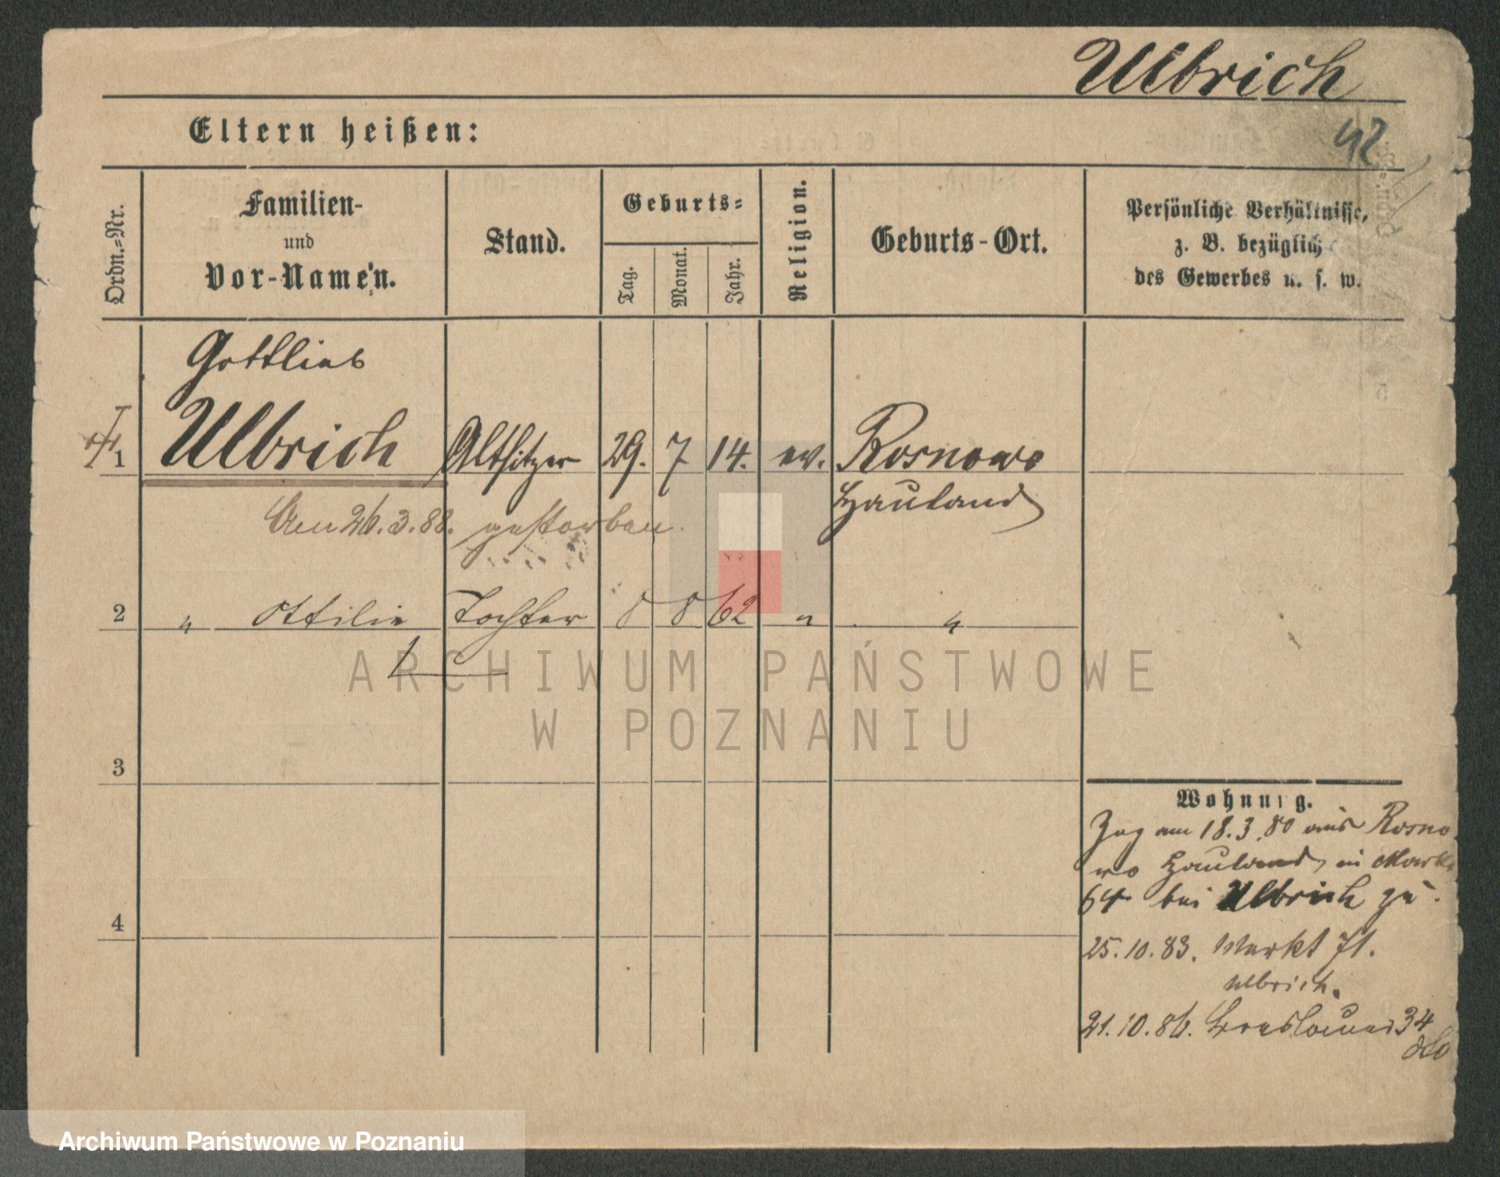 Ulbrich
42
Eltern heißen:
Ordn.=Nr.
Familien-
und
Vor-Namen.
Stand.
Geburts=
Tag.
Monat.
Jahr.
Religion.
Geburts-Ort.
Persönliche Verhältnisse,
z. B. bezüglich
des Gewerbes u. s. w.
Gottlieb
1 Ulbrich Altsitzer 29. 7 14. ev. Rosnowo
Hauland
Am 26.3.88. gestorben.
2 " Ottilie Tochter 8 8 62 " "
ARCHIWUM PAŃSTWOWE
W POZNANIU
3
4
Wohnung.
Zog am 18.3.80 aus Rosno-
wo Hauland, in Markt
64 bei Ulbrich zu.
25.10.83. Markt 71.
Ulbrich.
21.10.86. Breslauer 34
dto
Archiwum Państwowe w Poznaniu